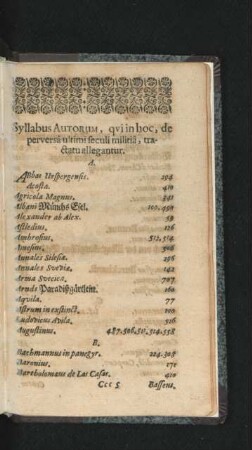 Syllabus AUTORUM, qvi in hoc, de
perversâ ultimi seculi militiâ, tra-
ctatu allegantur.
A.
Abbas Urspergensis. 204
Acosta. 410
Agricola Magnus.
Albani Münchs Esel.
Alexander ab Alex. 59
Alstedius. 126
Ambrosius. 512, 514
Amesius.
Annales Silesiæ. 296
Annales Sveviæ. 142
Arma Svecica.
Arnds Paradißgärtlein. 160
Aqvila. 77
Astrum inextinct. 200
Ludovicus Avila. 516
Augustinus. 487, 506, 514, 558
B.
Bachmannus in panegyr. 224, 305
Baronius. 171
Bartholomæus de Las Casas. 410
Ccc 5 Bassæus.